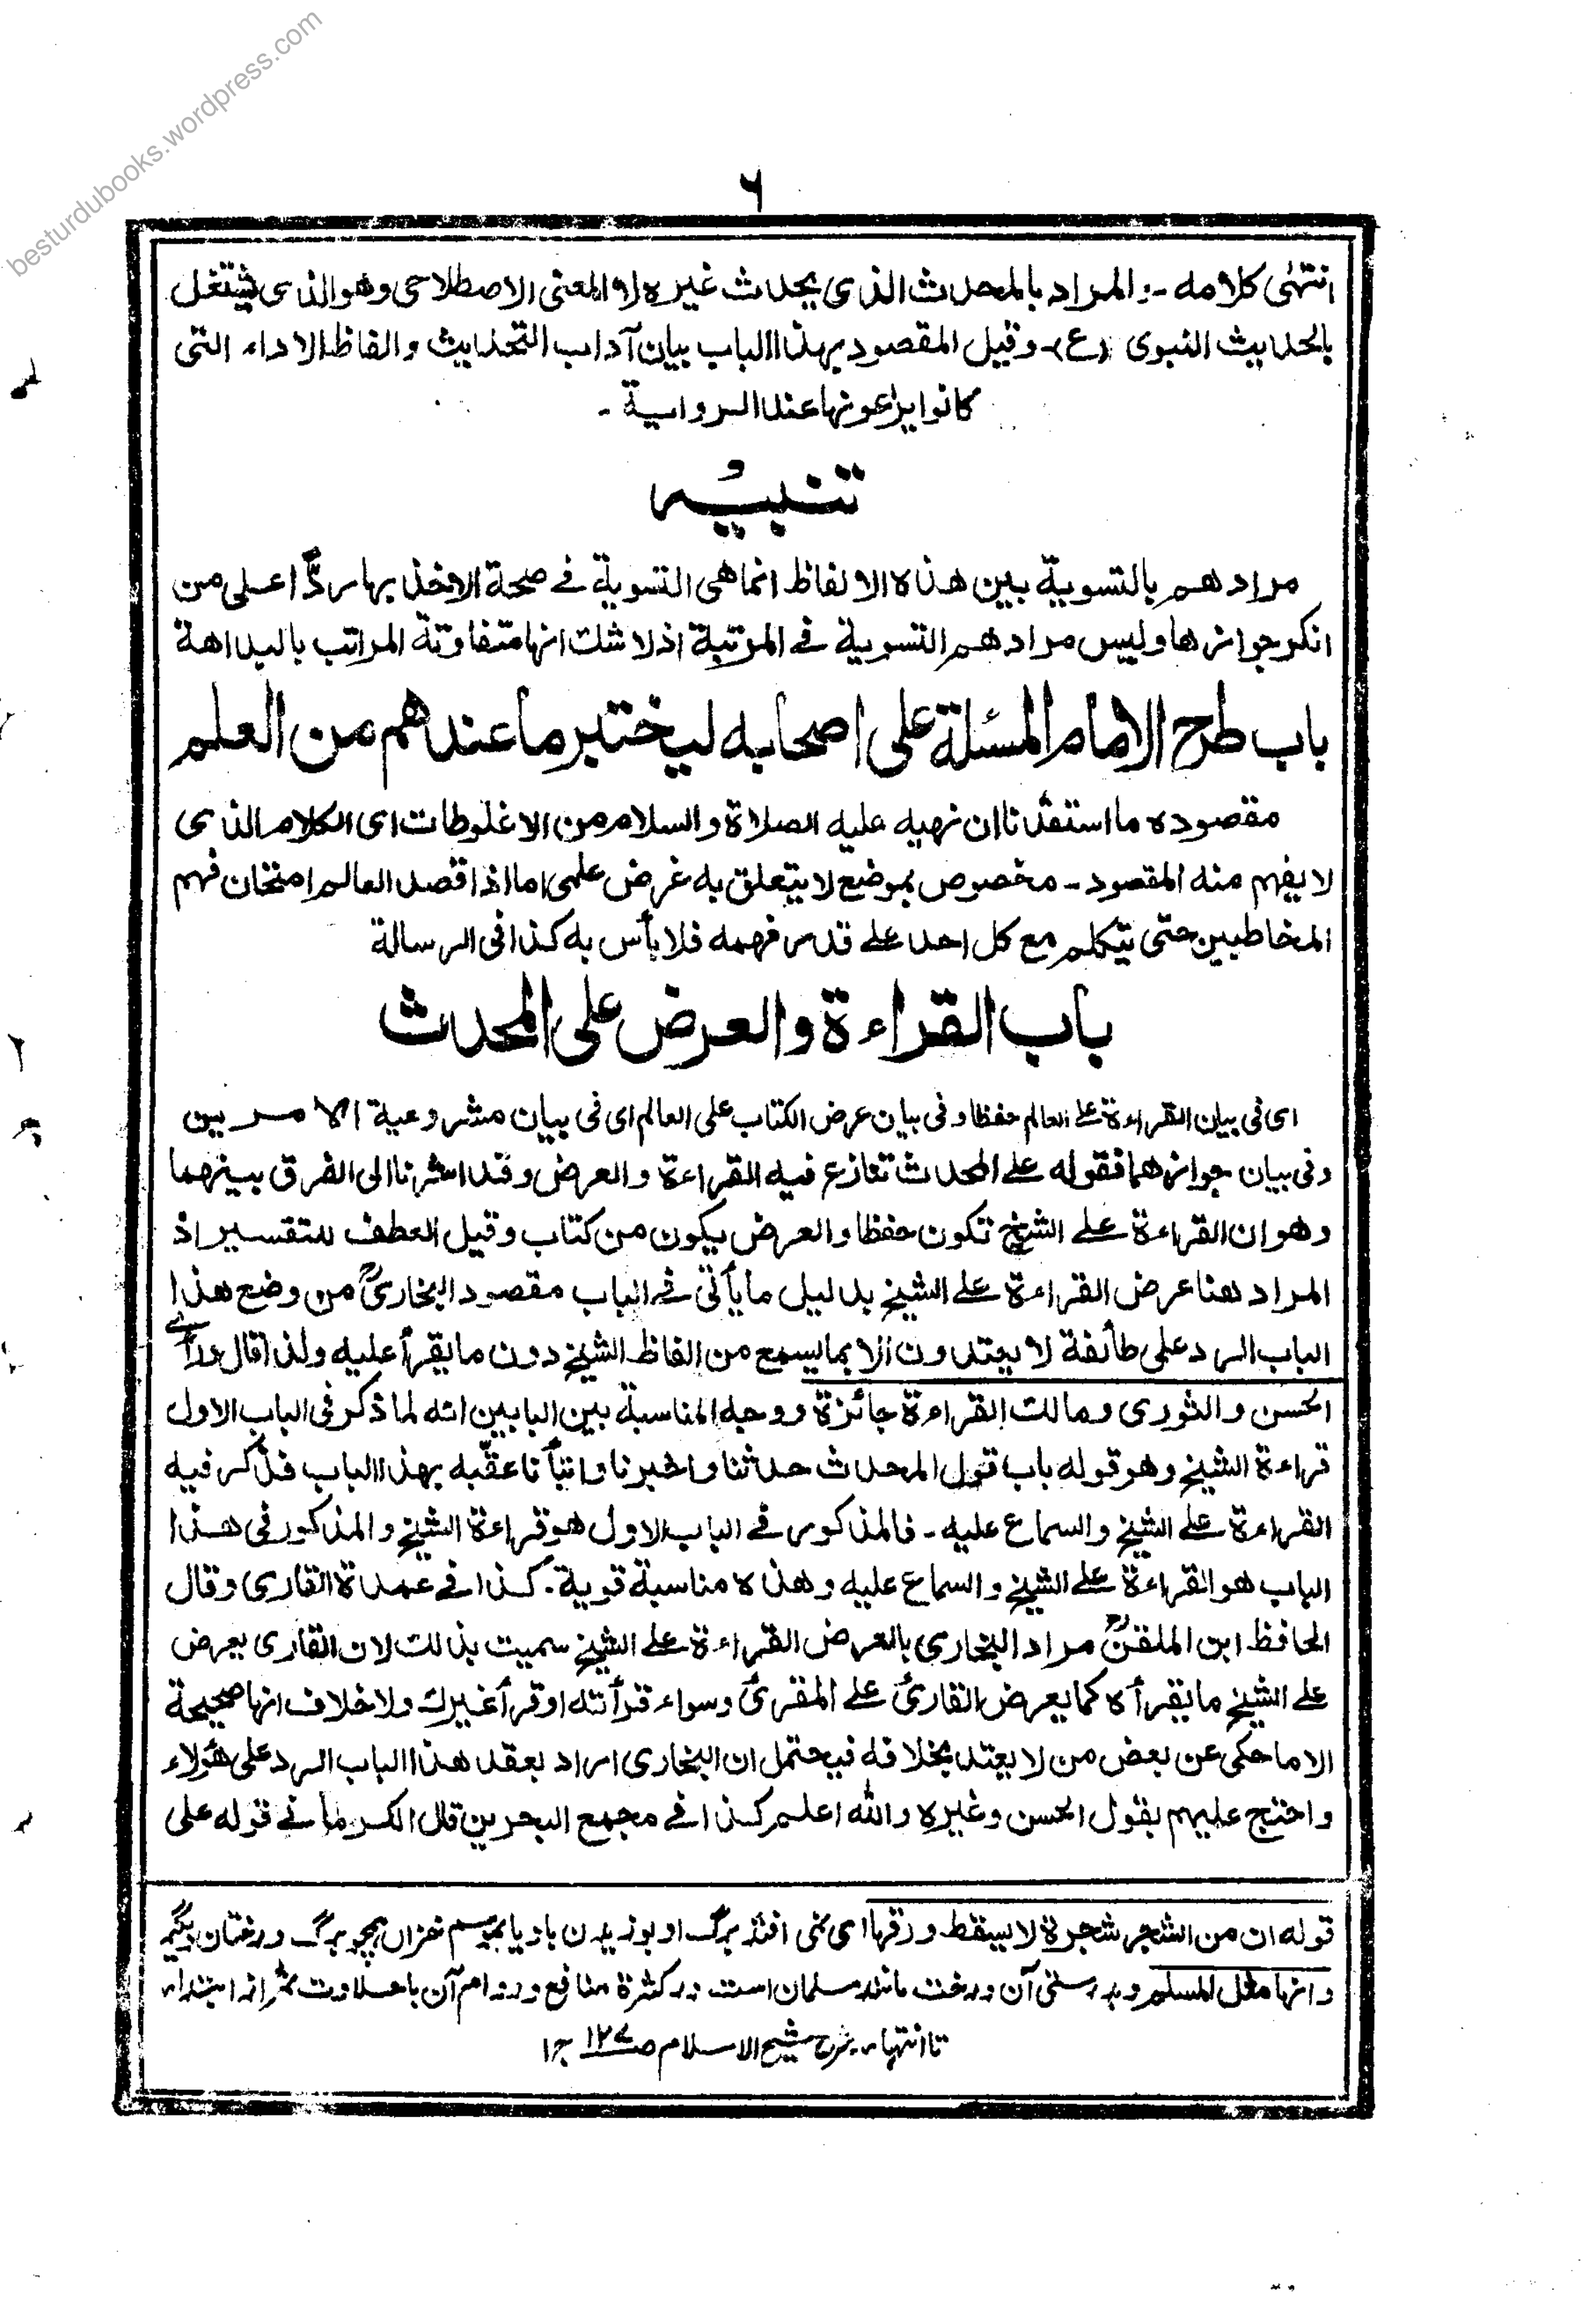 besturdubooks.wordpress.com
٦
انتهى كلامه -: والمراد بالمحدث الذى يحدث غيره لا المعنى الاصطلاحى وهو الذى يشتغل
بالحديث النبوى (ع)- وقيل المقصود بهذا الباب بيان آداب التحديث والفاظ الاداء التى
كانوا يراعونها عند الرواية -
تنبيه
مرادهم بالتسوية بين هذه الالفاظ انما هى التسوية فى صحة الاخذ بها ردًّا على من
انكر جوازها وليس مرادهم التسوية فى المرتبة اذ لا شك انها متفاوتة المراتب بالبداهة
باب طرح الامام المسئلة على اصحابه ليختبر ما عندهم من العلم
مقصوده ما استفدنا ان نهيه عليه الصلاة والسلام من الاغلوطات اى الكلام الذى
لا يفهم منه المقصود - مخصوص بموضع لا يتعلق به غرض علمى اما اذا قصد العالم امتحان فهم
المخاطبين حتى يتكلم مع كل احد على قدر فهمه فلا بأس به كذا فى الرسالة
باب القراءة والعرض على المحدث
اى فى بيان القراءة على العالم حفظا وفى بيان عرض الكتاب على العالم اى فى بيان مشروعية الامرين
وفى بيان جوازهما فقوله على المحدث تنازع فيه القراءة والعرض وقد اشرنا الى الفرق بينهما
وهو ان القراءة على الشيخ تكون حفظا والعرض يكون من كتاب وقيل العطف للتفسير اذ
المراد هنا عرض القراءة على الشيخ بدليل ما يأتى فى الباب مقصود البخارىؒ من وضع هذا
الباب الرد على طائفة لا يعتدون الا بما يسمع من الفاظ الشيخ دون ما يقرأ عليه ولذا قال ورأى
الحسن والثورى ومالك القراءة جائزة ووجه المناسبة بين البابين انه لما ذكر فى الباب الاول
قراءة الشيخ وهو قوله باب قول المحدث حدثنا واخبرنا وانبأنا عقّبه بهذا الباب فذكر فيه
القراءة على الشيخ والسماع عليه - فالمذكور فى الباب الاول هو قراءة الشيخ والمذكور فى هذا
الباب هو القراءة على الشيخ والسماع عليه وهذه مناسبة قوية. كذا فى عمدة القارى وقال
الحافظ ابن الملقنؒ مراد البخارى بالعرض القراءة على الشيخ سميت بذلك لان القارى يعرض
على الشيخ ما يقرأه كما يعرض القارئ على المقرئ وسواء قرأته او قرأ غيرك ولا خلاف انها صحيحة
الا ما حكى عن بعض من لا يعتد بخلافه فيحتمل ان البخارى اراد بعقد هذا الباب الرد على هؤلاء
واحتج عليهم بقول الحسن وغيره والله اعلم كذا فى مجمع البحرين قال الكرمانى قوله على
قوله ان من الشجر شجرة لا يسقط ورقها اى نمى افتد برگ او بوزيدن باد يا بموسم خزاں ہمچو برگ درختان ديگر
وانها مثل المسلم وبدرستى آن درخت مانند مسلمان است در كثرة منافع و دوام آن با حلاوت ثمر از ابتداء
تا انتهاء، شرح شيخ الاسلام ص١٢٧ ج١